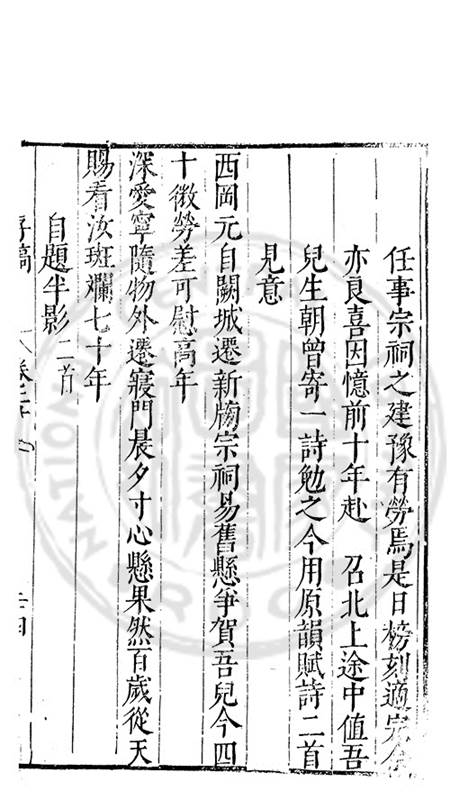 任事宗祠之建豫有勞焉是日榜刻適完
亦良喜因憶前十年赴　召北上途中值吾
兒生朝曾寄一詩勉之今用原韻賦詩二首
見意
西岡元自闕城遷新牓宗祠易舊懸爭賀吾兒今四
十徽勞差可慰高年
深愛寧隨物外遷寢門晨夕寸心懸果然百歲從天
賜看汝斑斕七十年
自題半影二首
存稿　卷二十